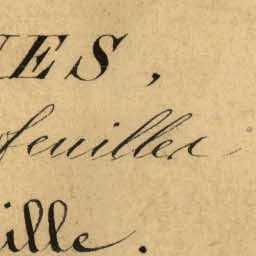 ES,
feuilles
ille.